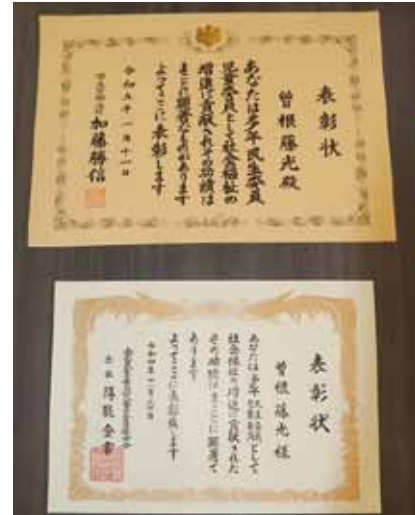 表彰状
曽根藤光殿
あなたは多年民生委員
児童委員として社会福祉の
増進に貢献されその功績は
まことに顕著なものがあります
よってここに表彰します
令和五年一月十一日
加藤勝信
表彰状
曽根藤光様
あなたは多年
として
社会福祉の増進に貢献された
その功績はまことに顕著で
あります
よってここに表彰致します
令和四年十一月
会長 得能金市